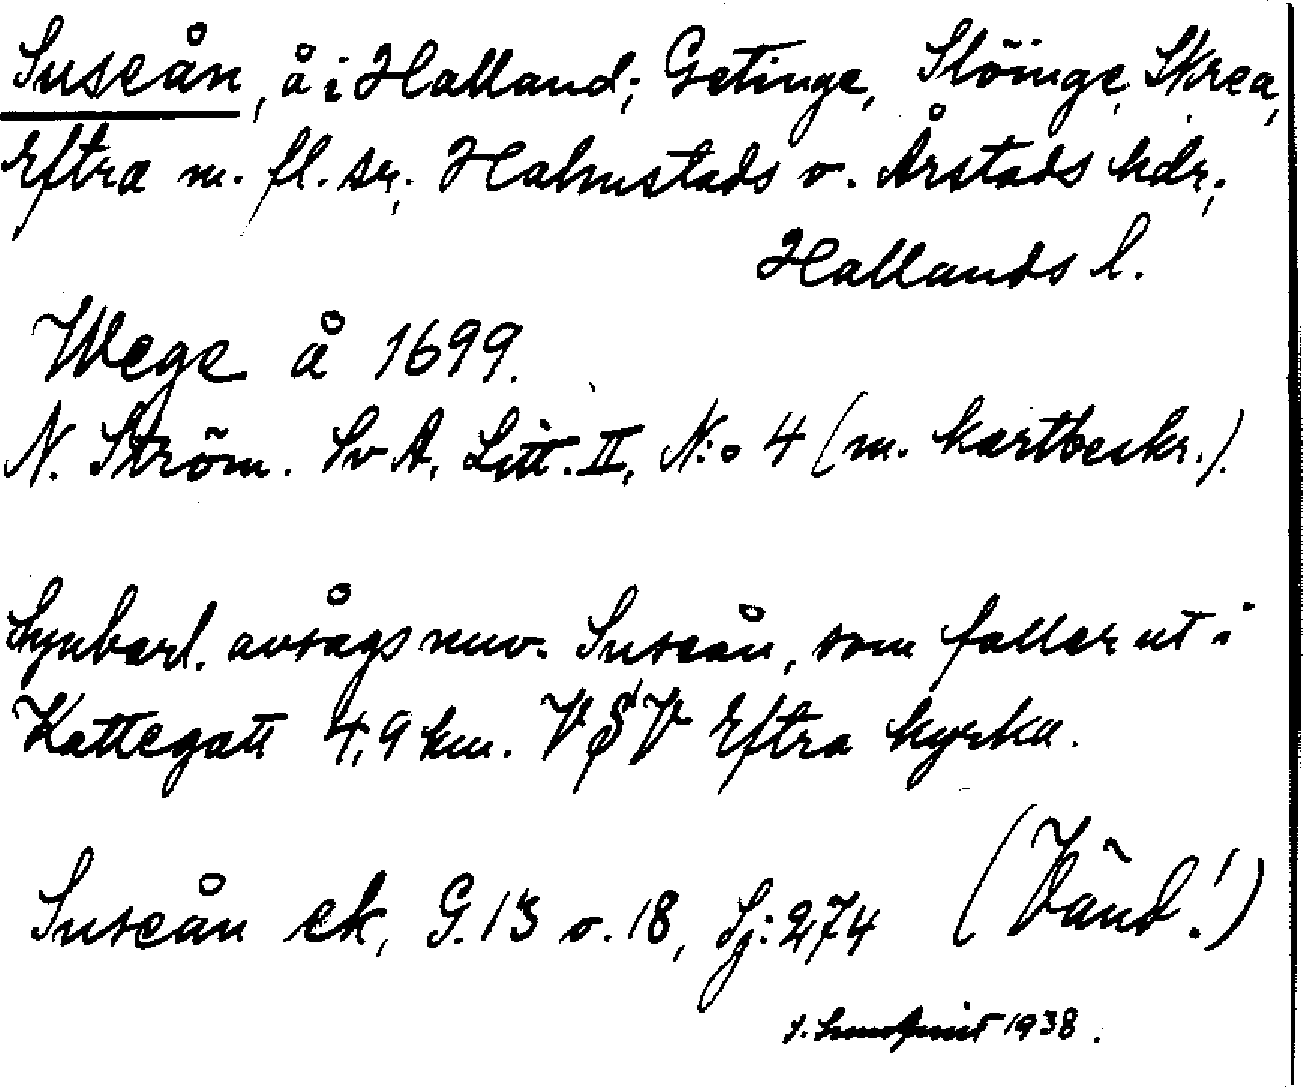 Suseån, å i Halland; Getinge, Slöinge, Skrea,
Eftra m. fl. snr; Halmstads o. Årstads hdr;
Hallands l.
Wege å 1699.
N. Ström. Sv A, Litt. II, N:o 4 (m. kartbeskr.).
Synbarl. avsågs nuv. Suseån, som faller ut i
Kattegatt 4,9 km. V§V Eftra kyrka.
Suseån ek, G. 13 o. 18, Sj: 274 (Vänd!)
1938.